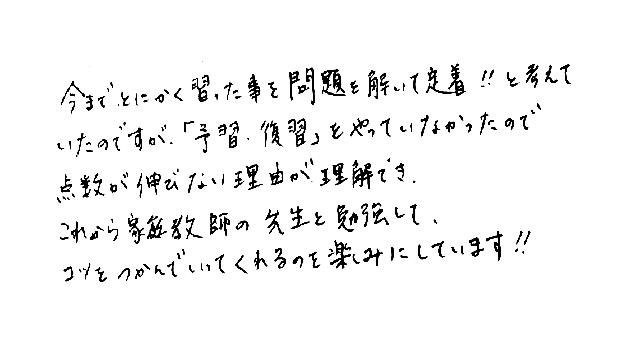 今までとにかく習った事を問題を解いて定着!!と考えて
いたのですが、「予習・復習」をやっていなかったので
点数が伸びない理由が理解でき、
これから家庭教師の先生と勉強して、
コツをつかんでいってくれるのを楽しみにしています!!